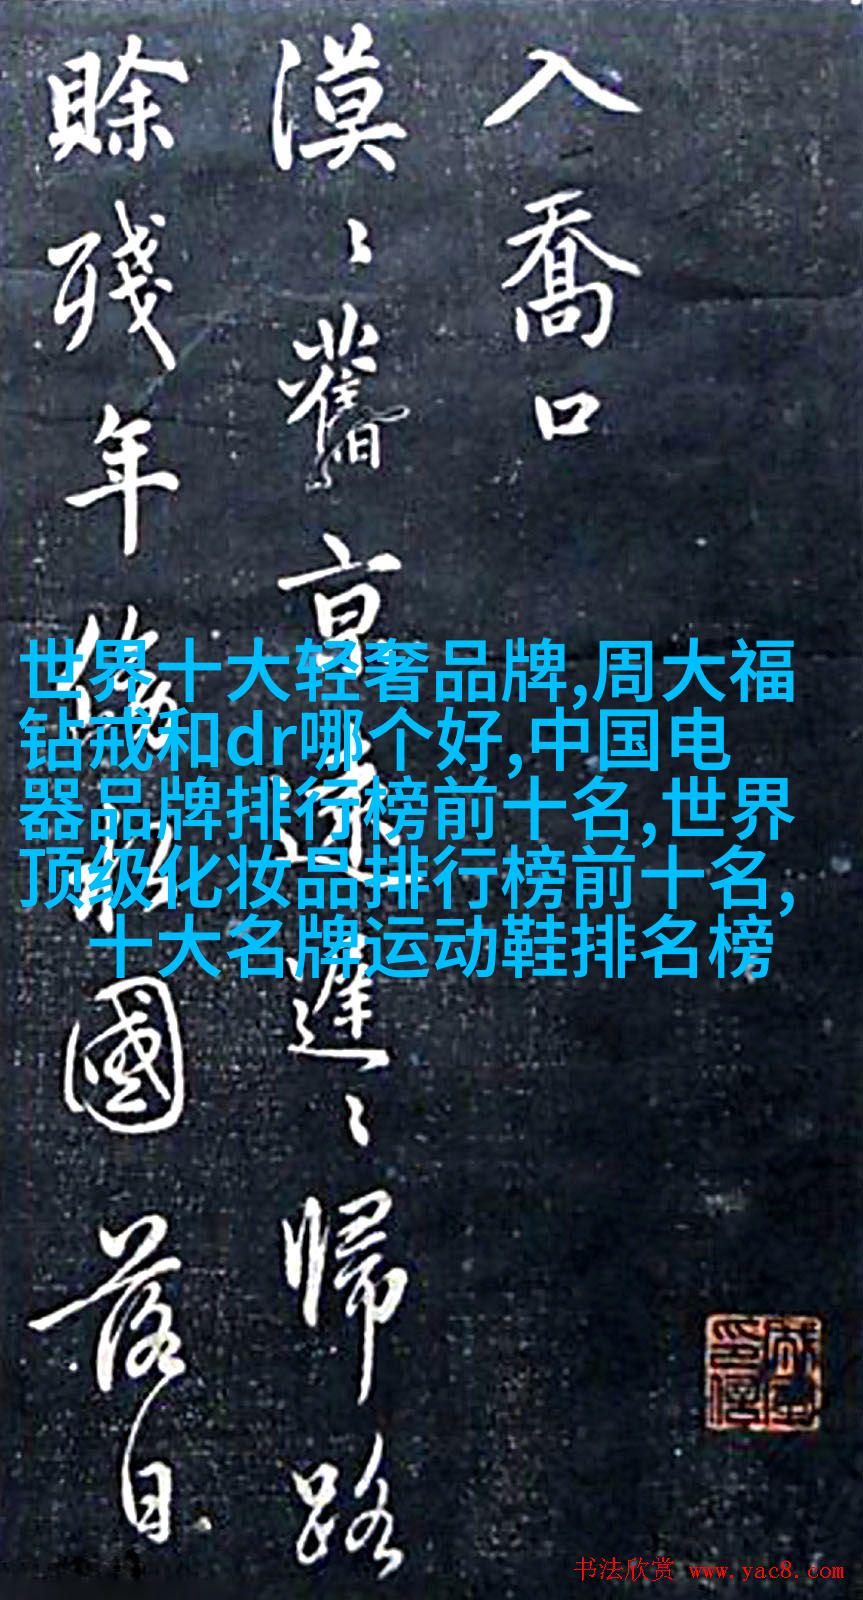 入喬口
漠〻舊京遠遲〻歸路
賒殘年傍水國落日
世界十大轻奢品牌,周大福
钻戒和dr哪个好,中国电
器品牌排行榜前十名,世界
顶级化妆品排行榜前十名,
十大名牌运动鞋排名榜
书法欣赏 www.yac8.com